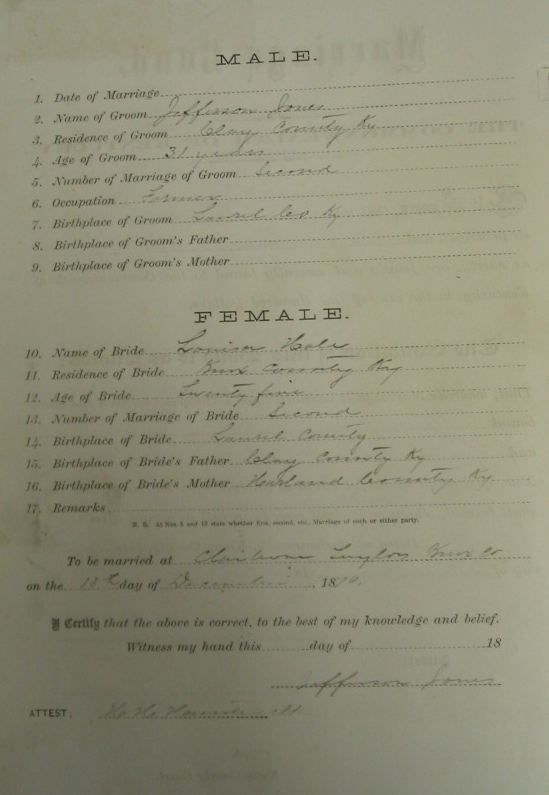 MALE.
1. Date of Marriage
2. Name of Groom Jefferson Jones
3. Residence of Groom Clay County Ky
4. Age of Groom 31 years
5. Number of Marriage of Groom Second
6. Occupation Farmer
7. Birthplace of Groom Laurel Co Ky
8. Birthplace of Groom's Father
9. Birthplace of Groom's Mother
FEMALE.
10. Name of Bride Louisa Hale
11. Residence of Bride Knox County Ky
12. Age of Bride Twenty five
13. Number of Marriage of Bride Second
14. Birthplace of Bride Laurel County
15. Birthplace of Bride's Father Clay County Ky
16. Birthplace of Bride's Mother Harland County Ky
17. Remarks
N. B. At Nos. 5 and 13 state whether first, second, etc., Marriage of each or either party.
To be married at Claiborne Knox Co
on the day of December 18
I Certify that the above is correct, to the best of my knowledge and belief.
Witness my hand this day of 18
Jefferson Jones
ATTEST: